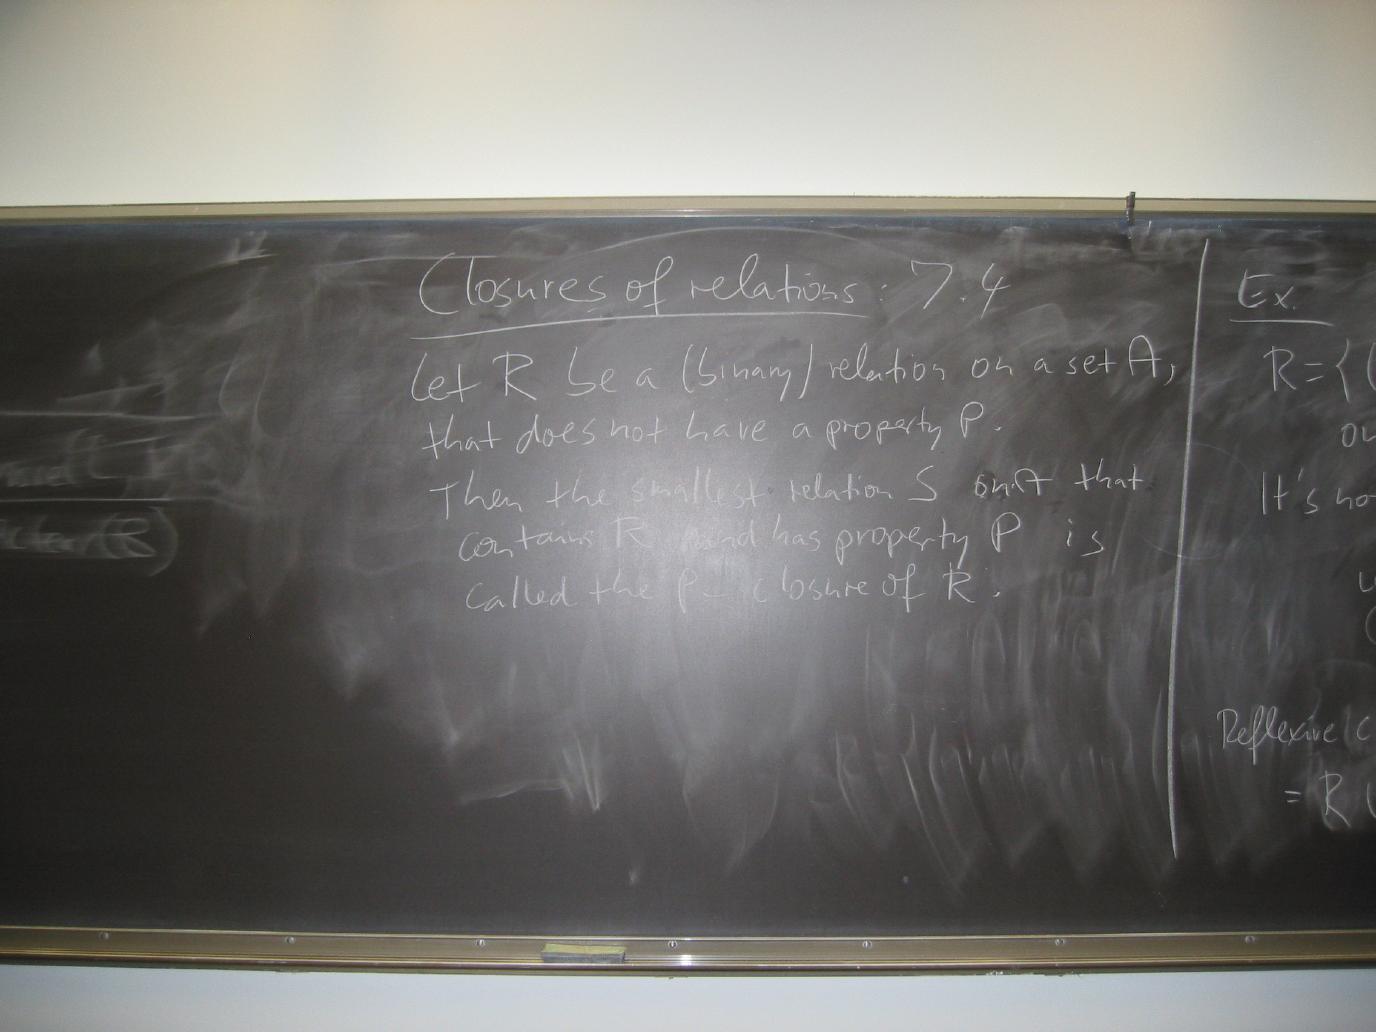 Closures of relations: 7.4
Let R be a (binary) relation on a set A,
that does not have a property P.
Then the smallest relation S on A that
contains R and has property P is
called the P-closure of R.
Ex.
R={(
It's not
Reflexive c
= R